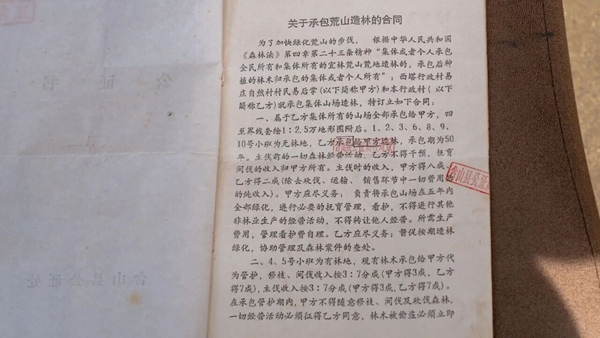 关于承包荒山造林的合同
为了加快绿化荒山的步伐， 根据中华人民共和国
《森林法》第四章第二十三条精神“集体或者个人承包
全民所有和集体所有的宜林荒山荒地造林的，承包后种
植的林木归承包的集体或者个人所有”；西塔行政村易
庄自然村村民易后掌(以下简称甲方)和本行政村(以下
简称乙方)就承包集体山场造林，特订立如下合同：
一、属于乙方集体所有的山场全部承包给甲方，四
至界线套绘1：2.5万地形图附后。1、2、3、6、8、9、
10号小班为无林地，乙方承包给甲方造林，承包期为50
年。主伐前的一切森林经营活动，乙方不得干预，抚育
间伐的收入归甲方所有。主伐时的收入，甲方得八成，
乙方得二成(除去砍伐、运输、销售环节中一切费用后
的纯收入)。甲方应尽义务： 负责将承包山场在五年内
全部绿化，进行必要的抚育管理，看护，不得进行其他
非林业生产的经营活动，不得转让他人经营。所需生产
费用，管理看护费自理。乙方应尽义务：督促按期造林
绿化，协助管理及森林案件的查处。
二、4、5号小班为有林地，现有林木承包给甲方代
为管护，修枝、间伐收入按3：7分成(甲方得3成,乙方
得7成),主伐收入按3：7分成(甲方得3成,乙方得7成)。
在承包管护期内,甲方不得随意修枝、间伐及砍伐森林，
一切经营活动必须征得乙方同意，林木被偷盗必须立即